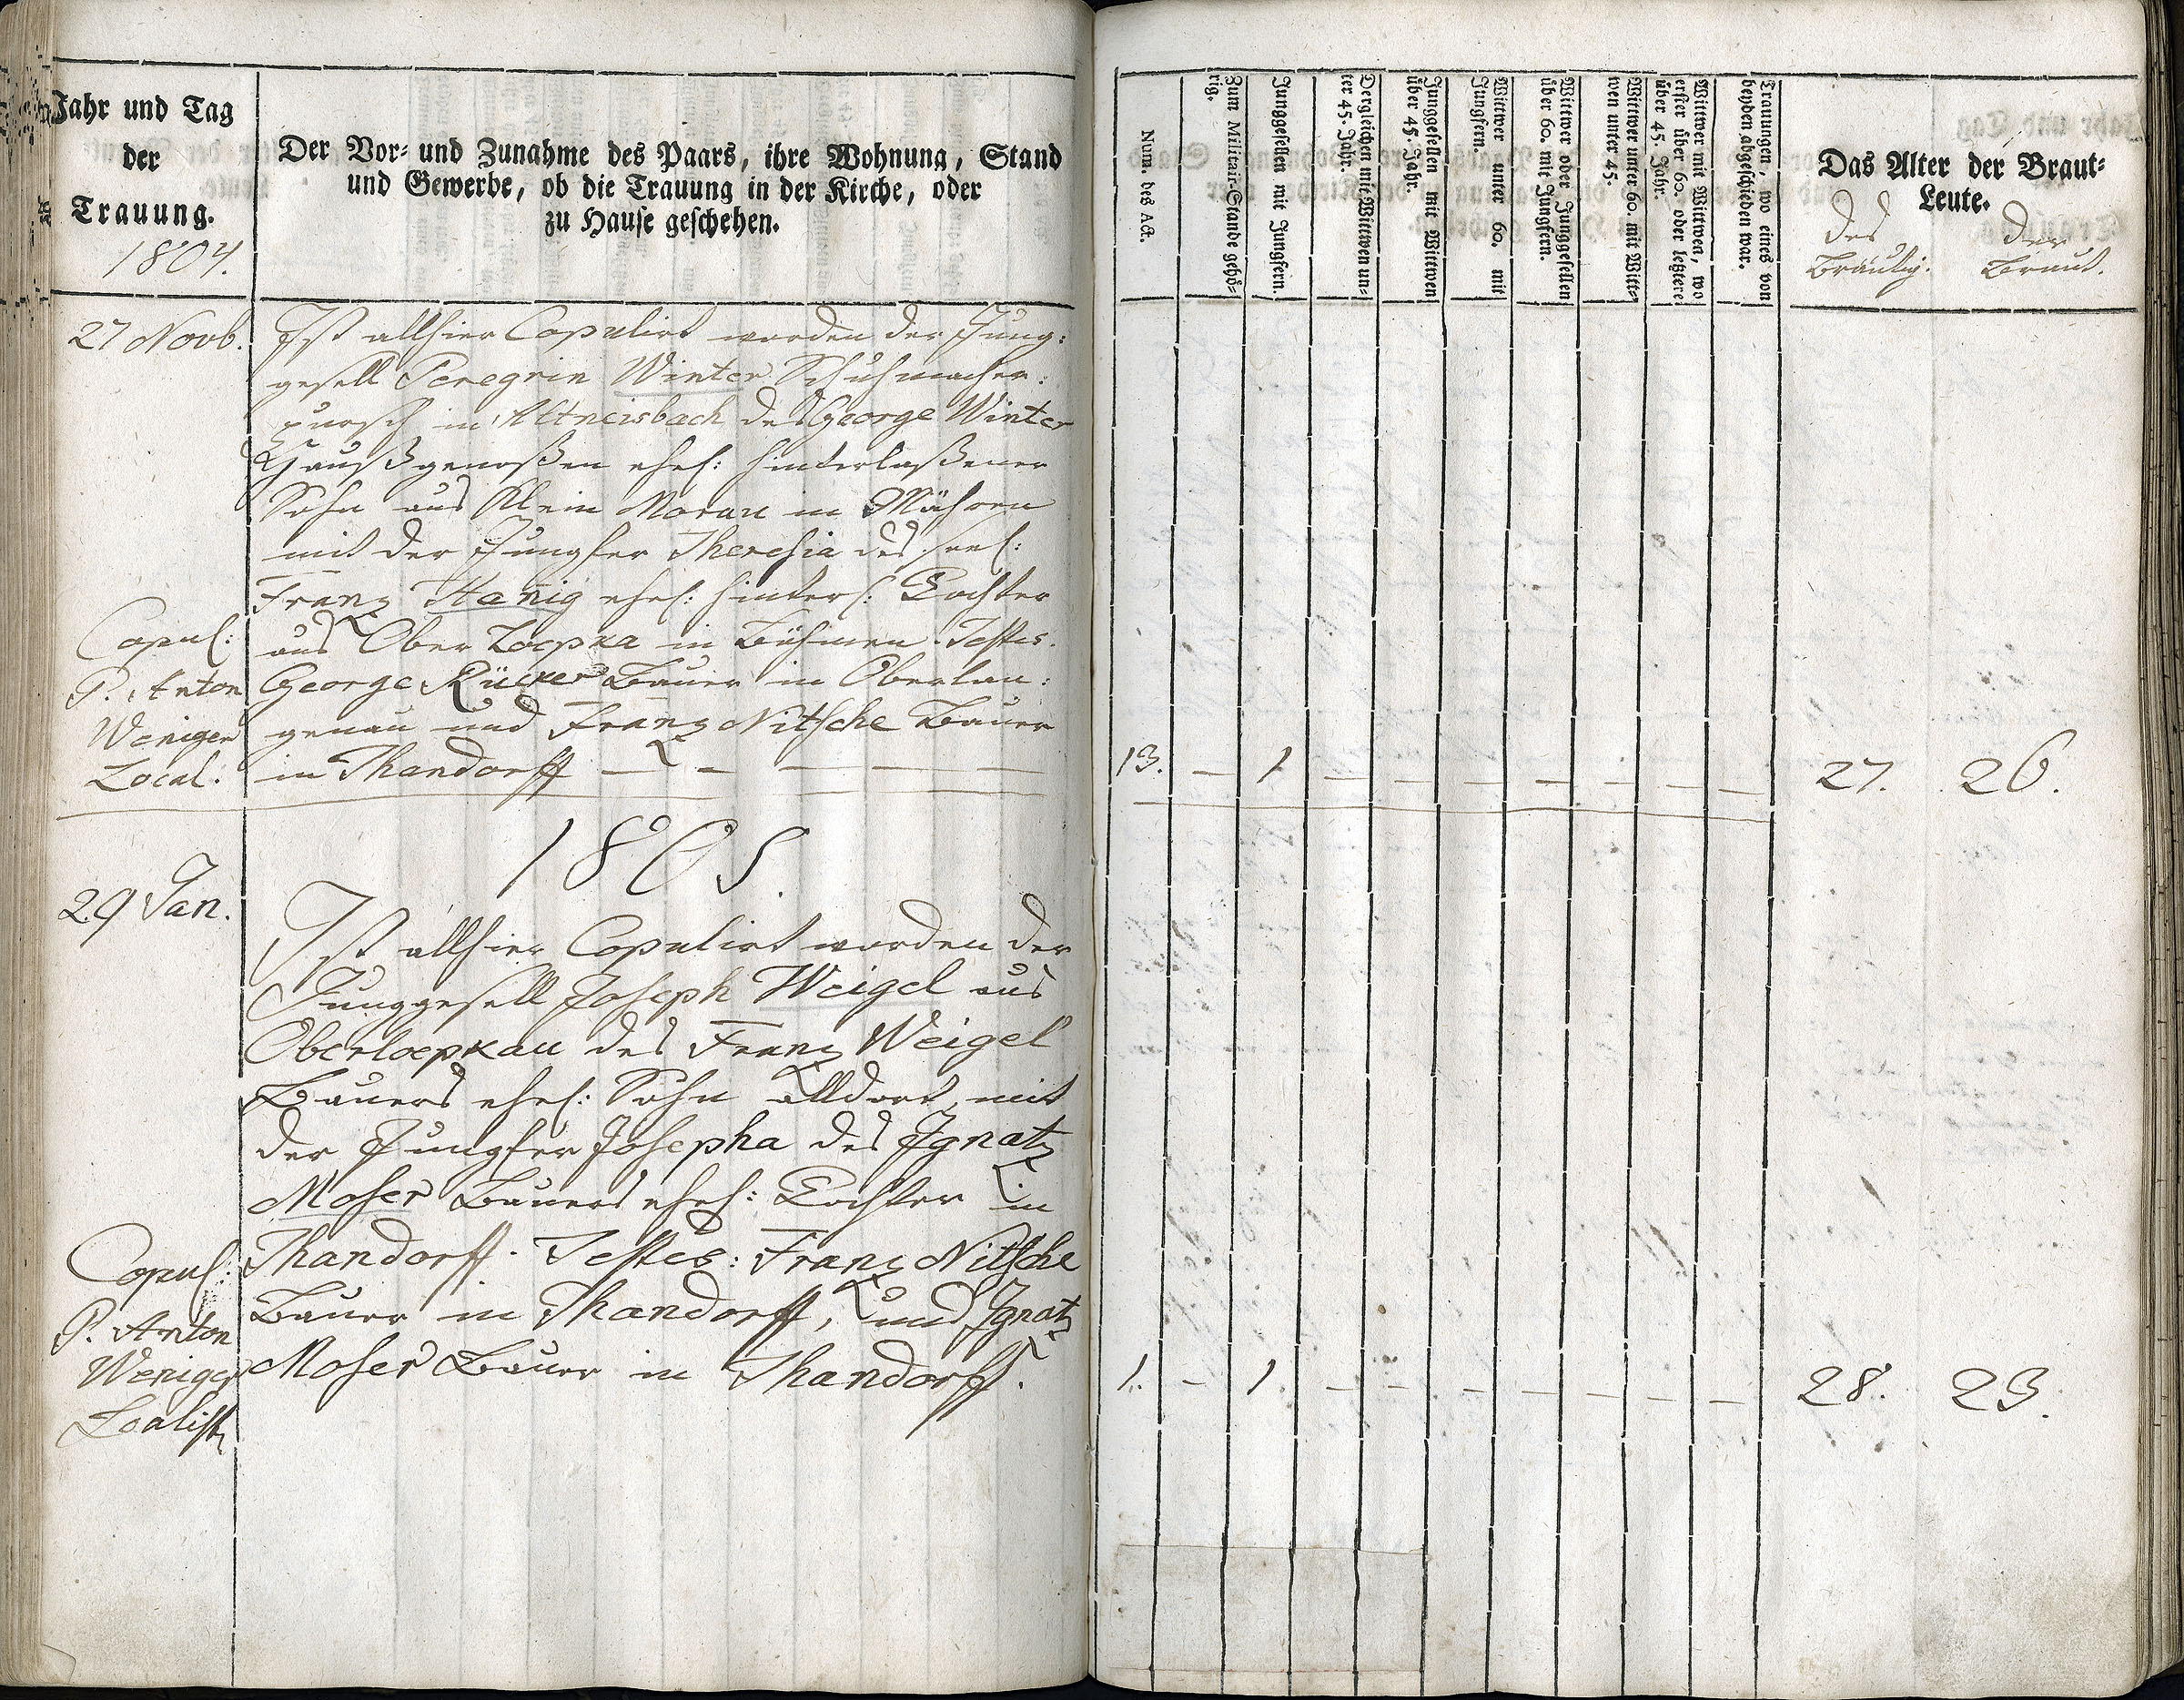 Jahr und Tag
der
Trauung.
1804.
Der Vor- und Zunahme des Paars, ihre Wohnung, Stand
und Gewerbe, ob die Trauung in der Kirche, oder
zu Hause geschehen.
Num. des Act.
Zum Militair-Stande gehö-
rig.
Junggesellen mit Jungfern.
Dergleichen mit Wittwen un-
ter 45. Jahr.
Junggesellen mit Wittwen
über 45. Jahr.
Wittwer unter 60. mit
Jungfern.
Wittwer oder Junggesellen
über 60. mit Jungfern.
Wittwer unter 60. mit Witt-
wen unter 45.
Wittwer mit Wittwen, wo
erster über 60. oder letztere
über 45. Jahr.
Trauungen, wo eines von
beyden abgeschieden war.
Das Alter der Braut-
Leute.
des
Bräutig.
der
Braut.
27 Novb.
Ist allhier Copulirt worden der Jung:
gesell Peregrin Winter Schuhmacher:
pursch in Altneisbach des George Winter
Haußgenoßen ehel: hinterlaßener
Sohn aus Klein Morau in Mähren
mit der Jungfer Theresia des seel:
Franz Hanig ehel: hinterl: Tochter
aus Ober Loepka in Böhmen. Testes.
George Rücker Bauer in Oberlan:
genau und Franz Nitsche Bauer
in Thandorff – – – – –
Copul:
P. Anton
Weniger
Local:
13. – 1 – – – – – – – 27. 26.
1805.
29 Jan.
Ist allhier Copulirt worden der
Junggesell Joseph Weigel aus
Oberloepkau des Franz Weigel
Bauers ehel: Sohn alldort, mit
der Jungfer Josepha des Ignatz
Moser Bauers ehel: Tochter in
Thandorff. Testes: Franz Nitsche
Bauer in Thandorff, und Ignatz
Moser Bauer in Thandorff.
Copul:
P. Anton
Weniger
Loalist
1. – 1 – – – – – – – 28. 23.